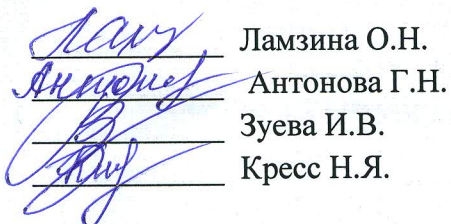 Ламзина О.Н.
Антонова Г.Н.
Зуева И.В.
Кресс Н.Я.